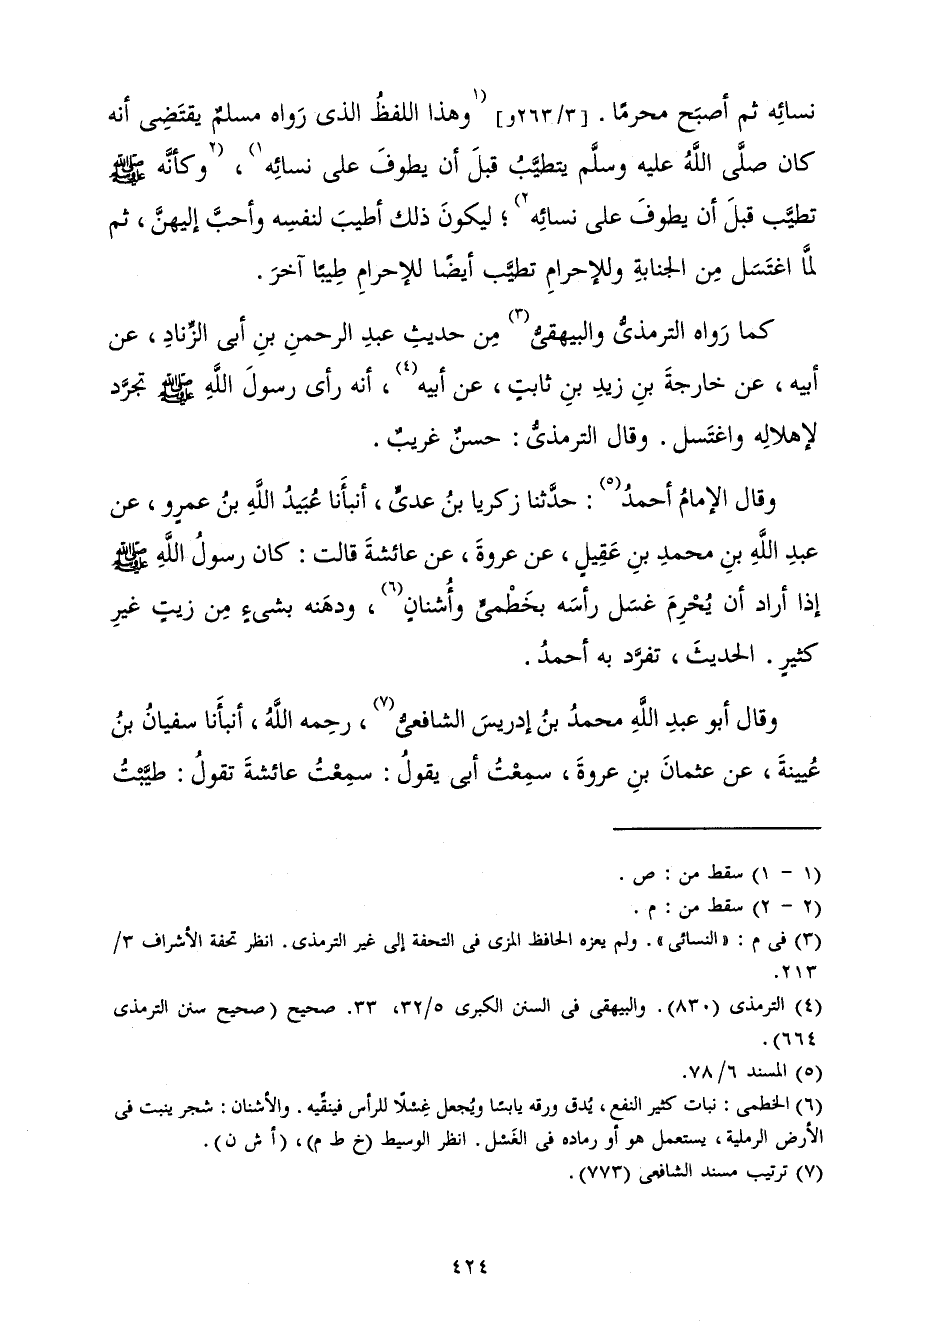 نسائِه ثم أصبَح محرمًا . [٢٦٣/٣و] (١وهذا اللفظُ الذى رَواه مسلمٌ يقتَضِى أنه
كان صلَّى اللَّهُ عليه وسلَّم يتطيَّبُ قبلَ أن يطوفَ على نسائِه١) ، (٢وكأنَّه ﷺ
تطيَّب قبلَ أن يطوفَ على نسائِه٢) ؛ ليكونَ ذلك أطيبَ لنفسِه وأحبَّ إليهنَّ ، ثم
لمَّا اغتَسَل مِن الجنابةِ وللإحرامِ تطيَّب أيضًا للإحرامِ طِيبًا آخرَ .
كما رَواه الترمذىُّ والبيهقىُّ(٣) مِن حديثِ عبدِ الرحمنِ بنِ أبى الزِّنادِ ، عن
أبيه ، عن خارجةَ بنِ زيدِ بنِ ثابتٍ ، عن أبيه(٤) ، أنه رأى رسولَ اللَّهِ ﷺ تجرَّد
لإهلالِه واغتَسل . وقال الترمذىُّ : حسنٌ غريبٌ .
وقال الإمامُ أحمدُ(٥) : حدَّثنا زكريا بنُ عدىٍّ ، أنبأَنا عُبَيدُ اللَّهِ بنُ عمرٍو ، عن
عبدِ اللَّهِ بنِ محمدِ بنِ عَقِيلٍ ، عن عروةَ ، عن عائشةَ قالت : كان رسولُ اللَّهِ ﷺ
إذا أراد أن يُحْرِمَ غسَل رأسَه بخَطْمىٍّ وأُشنانٍ(٦) ، ودهَنه بشىءٍ مِن زيتٍ غيرِ
كثيرٍ . الحديثَ ، تفرَّد به أحمدُ .
وقال أبو عبدِ اللَّهِ محمدُ بنُ إدريسَ الشافعىُّ(٧) ، رحِمه اللَّهُ ، أنبأَنا سفيانُ بنُ
عُيينةَ ، عن عثمانَ بنِ عروةَ ، سمِعْتُ أبى يقولُ : سمِعْتُ عائشةَ تقولُ : طيَّبْتُ
(١ - ١) سقط من : ص .
(٢ - ٢) سقط من : م .
(٣) فى م : «النسائى» . ولم يعزه الحافظ المزى فى التحفة إلى غير الترمذى . انظر تحفة الأشراف ٣/
٢١٣.
(٤) الترمذى (٨٣٠) . والبيهقى فى السنن الكبرى ٣٢/٥، ٣٣. صحيح (صحيح سنن الترمذى
٦٦٤) .
(٥) المسند ٧٨/٦.
(٦) الخطمى : نبات كثير النفع ، يُدق ورقه يابسًا ويُجعل غِسْلًا للرأس فينقِّيه . والأشنان : شجر ينبت فى
الأرض الرملية ، يستعمل هو أو رماده فى الغَسْل . انظر الوسيط (خ ط م) ، (أ ش ن) .
(٧) ترتيب مسند الشافعى (٧٧٣) .
٤٢٤